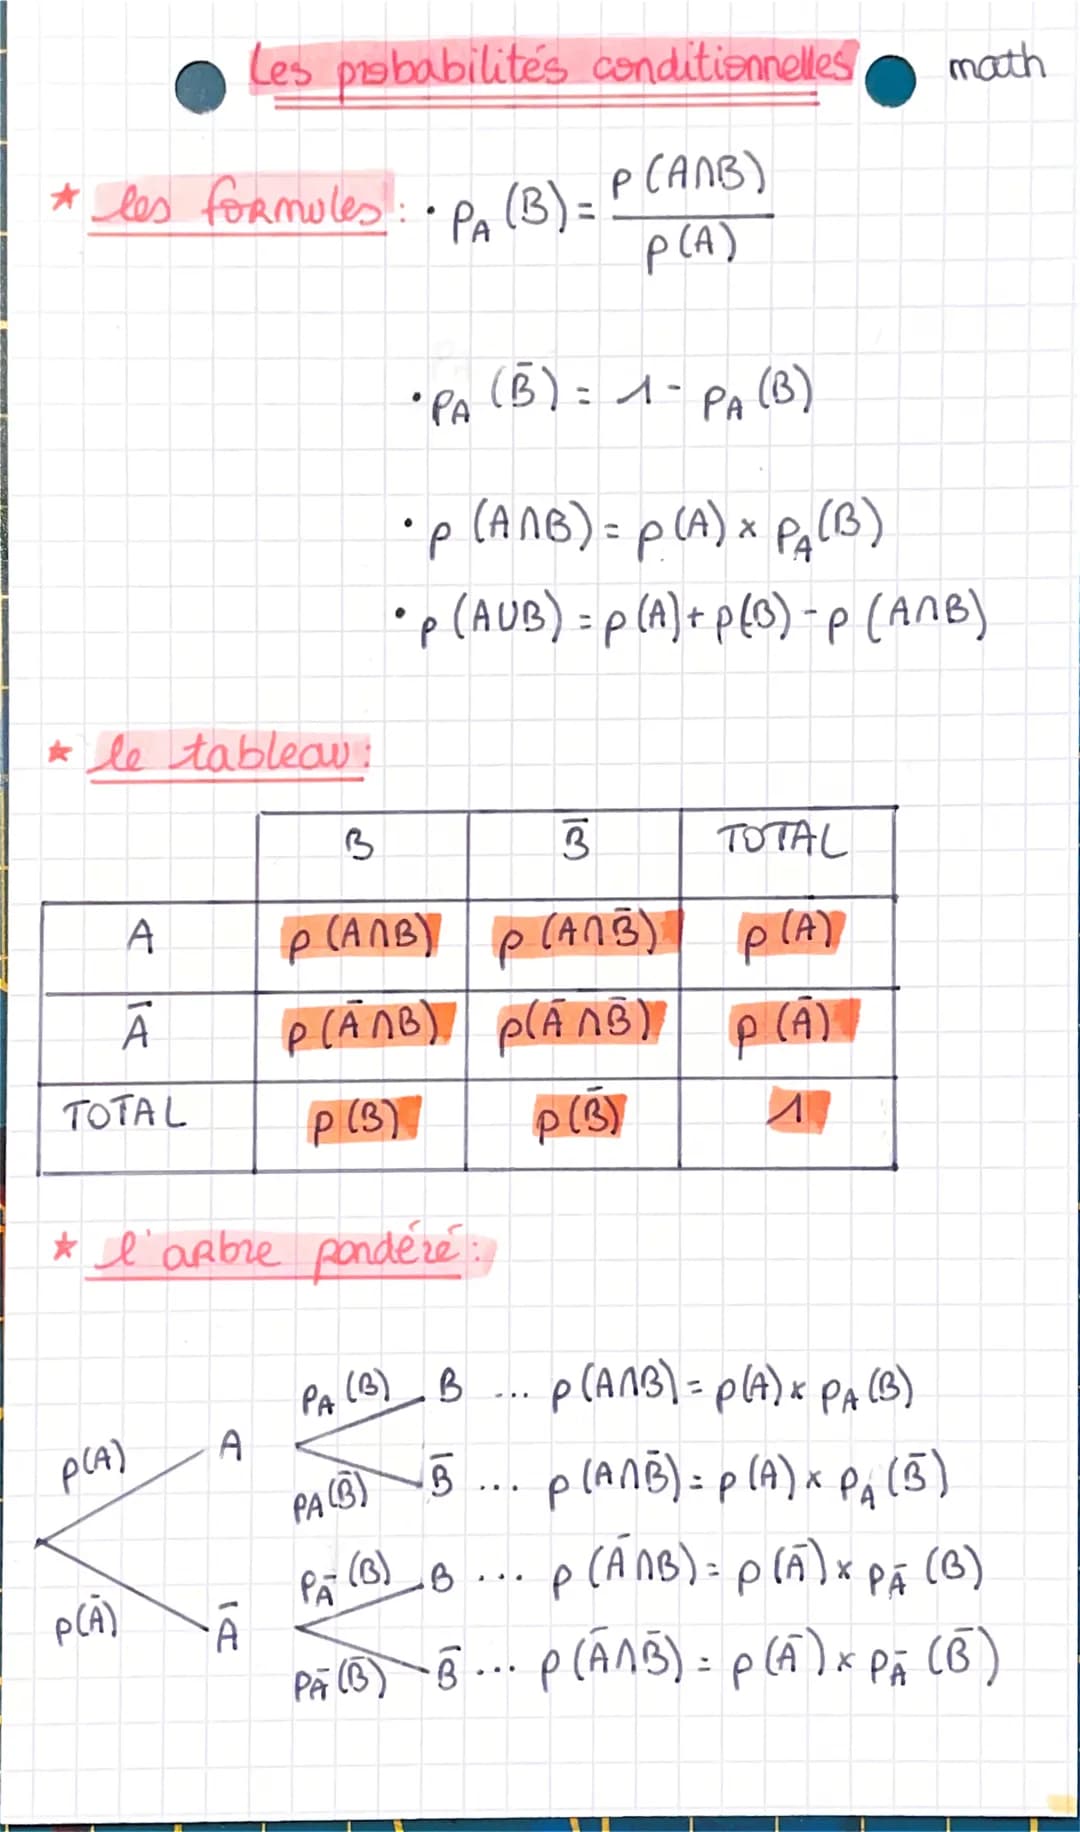 Les probabilités conditionnelles math
★ les formules : • p_A (B) = p (A∩B) / p (A)
• p_A (B̄) = 1 - p_A (B)
• p (A∩B) = p (A) × p_A (B)
• p (A∪B) = p (A) + p (B) - p (A∩B)
★ le tableau :
B B̄ TOTAL
A p (A∩B) p (A∩B̄) p (A)
Ā p (Ā∩B) p (Ā∩B̄) p (Ā)
TOTAL p (B) p (B̄) 1
★ l'arbre pondéré :
p_A (B) B ... p (A∩B) = p (A) × p_A (B)
p(A) A
p_A (B̄) B̄ ... p (A∩B̄) = p (A) × p_A (B̄)
p_Ā (B) B ... p (Ā∩B) = p (Ā) × p_Ā (B)
p(Ā) Ā
p_Ā (B̄) B̄ ... p (Ā∩B̄) = p (Ā) × p_Ā (B̄)